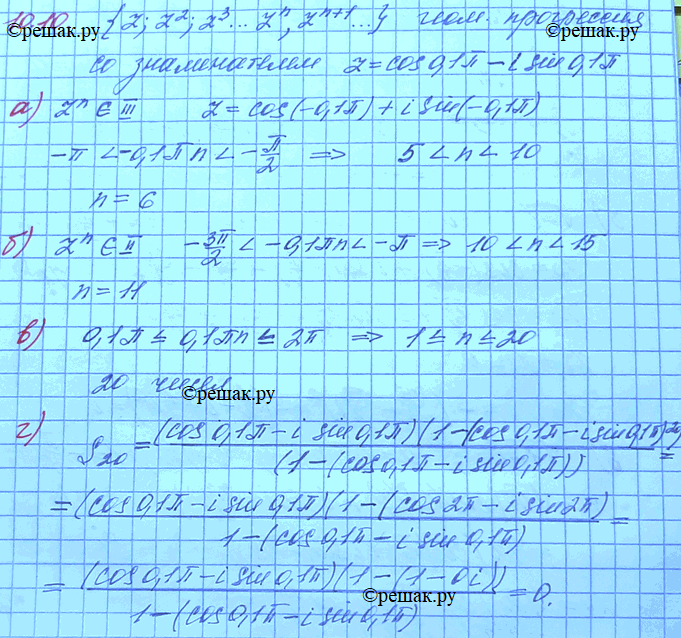 10.10 {z; z²; z³... zⁿ, zⁿ⁺¹...} геом. прогрессия
©решак.ру
со знаменателем z = cos 0,1π − i sin 0,1π
а) zⁿ ∈ III z = cos(−0,1π) + i sin(−0,1π)
−π < −0,1πn < −π/2 ⇒ 5 < n < 10
n = 6 ©решак.ру
б) zⁿ ∈ II −3π/2 < −0,1πn < −π ⇒ 10 < n < 15
n = 11
в) 0,1π ≤ 0,1πn ≤ 2π ⇒ 1 ≤ n ≤ 20
20 чисел ©решак.ру
г) S₂₀ = (cos 0,1π − i sin 0,1π)(1 − (cos 0,1π − i sin 0,1π)²⁰) / (1 − (cos 0,1π − i sin 0,1π)) =
= (cos 0,1π − i sin 0,1π)(1 − (cos 2π − i sin 2π) / 1 − (cos 0,1π − i sin 0,1π) =
= (cos 0,1π − i sin 0,1π)(1 − (1 − 0i)) / 1 − (cos 0,1π − i sin 0,1π) = 0.
©решак.ру